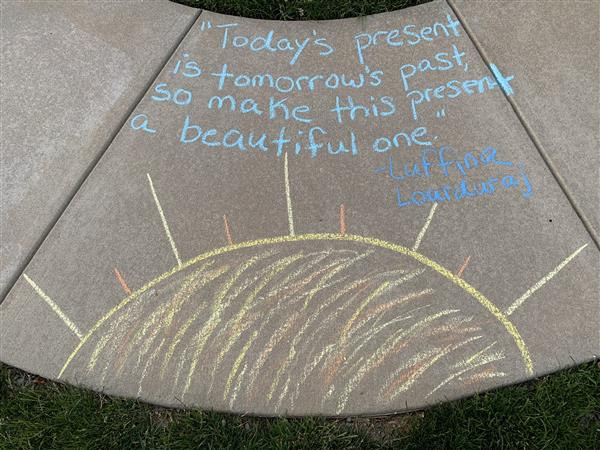 "Today's present
is tomorrow's past,
so make this present
a beautiful one."
-Luffina
Lourduraj